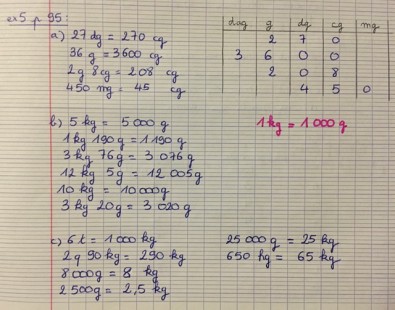 ex5 p 95 :
dag g dg cg mg
a) 27 dg = 270 cg 2 7 0
36 g = 3600 cg 3 6 0 0
2g 8cg = 208 cg 2 0 8
450 mg = 45 cg 4 5 0
b) 5 kg = 5 000 g 1 kg = 1 000 g
1 kg 190 g = 1 190 g
3 kg 76 g = 3 076 g
12 kg 5g = 12 005g
10 kg = 10 000g
3 kg 20g = 3 020 g
c) 6 t = 1 000 kg 25 000 g = 25 kg
2 q 90 kg = 290 kg 650 hg = 65 kg
8 000g = 8 kg
2 500g = 2,5 kg